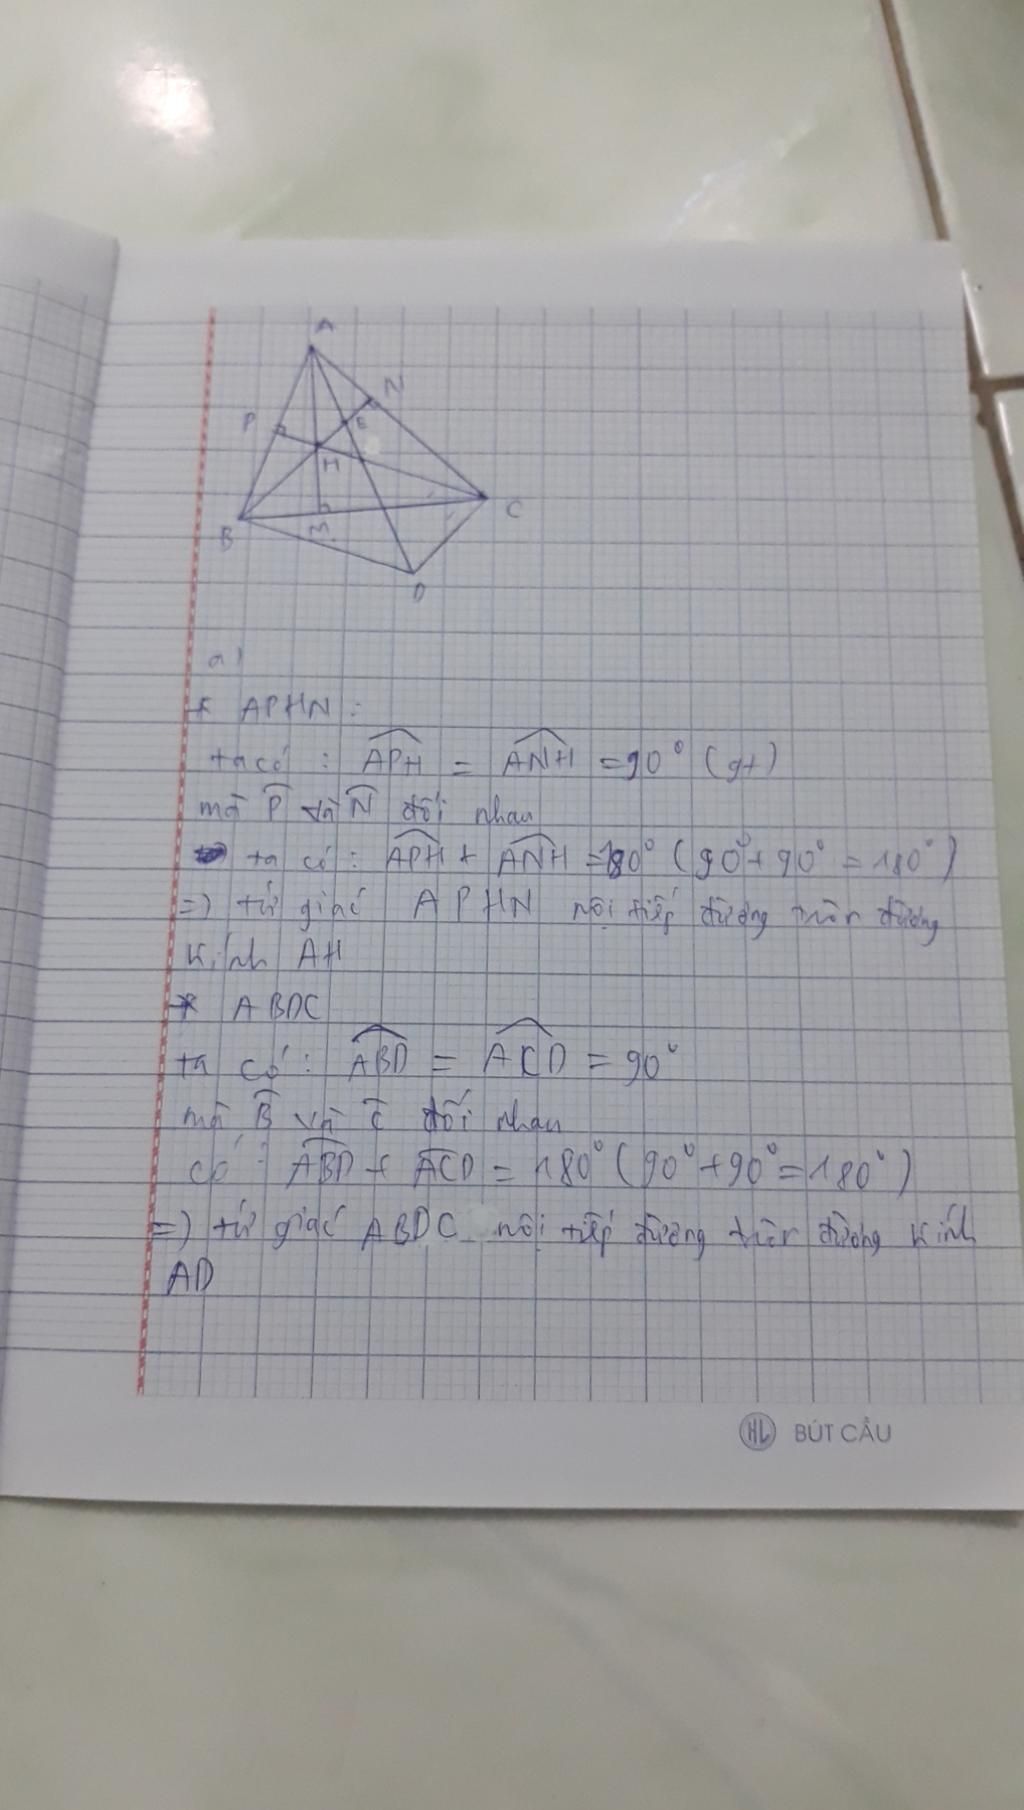 A
N
P
E
H
B
M
C
D
a)
* APHN :
ta có : APH = ANH = 90° (gt)
mà P và N đối nhau
ta có : APH + ANH = 180° (90° + 90° = 180°)
=) tứ giác APHN nội tiếp đường tròn đường
kính AH
* ABDC
ta có : ABD = ACD = 90°
mà B và C đối nhau
có : ABD + ACD = 180° (90° + 90° = 180°)
=) tứ giác ABDC nội tiếp đường tròn đường kính
AD
HL BÚT CẦU